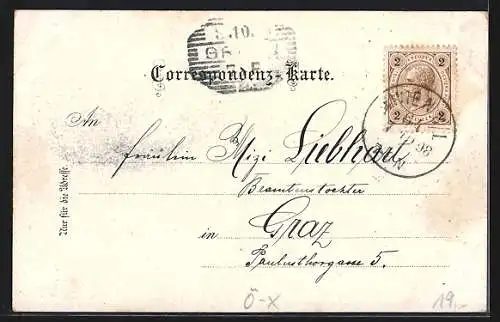 10.
98
Correspondenz-Karte.
2 2
2 2
98
An
Fräulein Mizi Liebhart
Beamtenstochter
in Graz
Paulusthorgasse 5.
Nur für die Adresse.
Ö-X
19.-